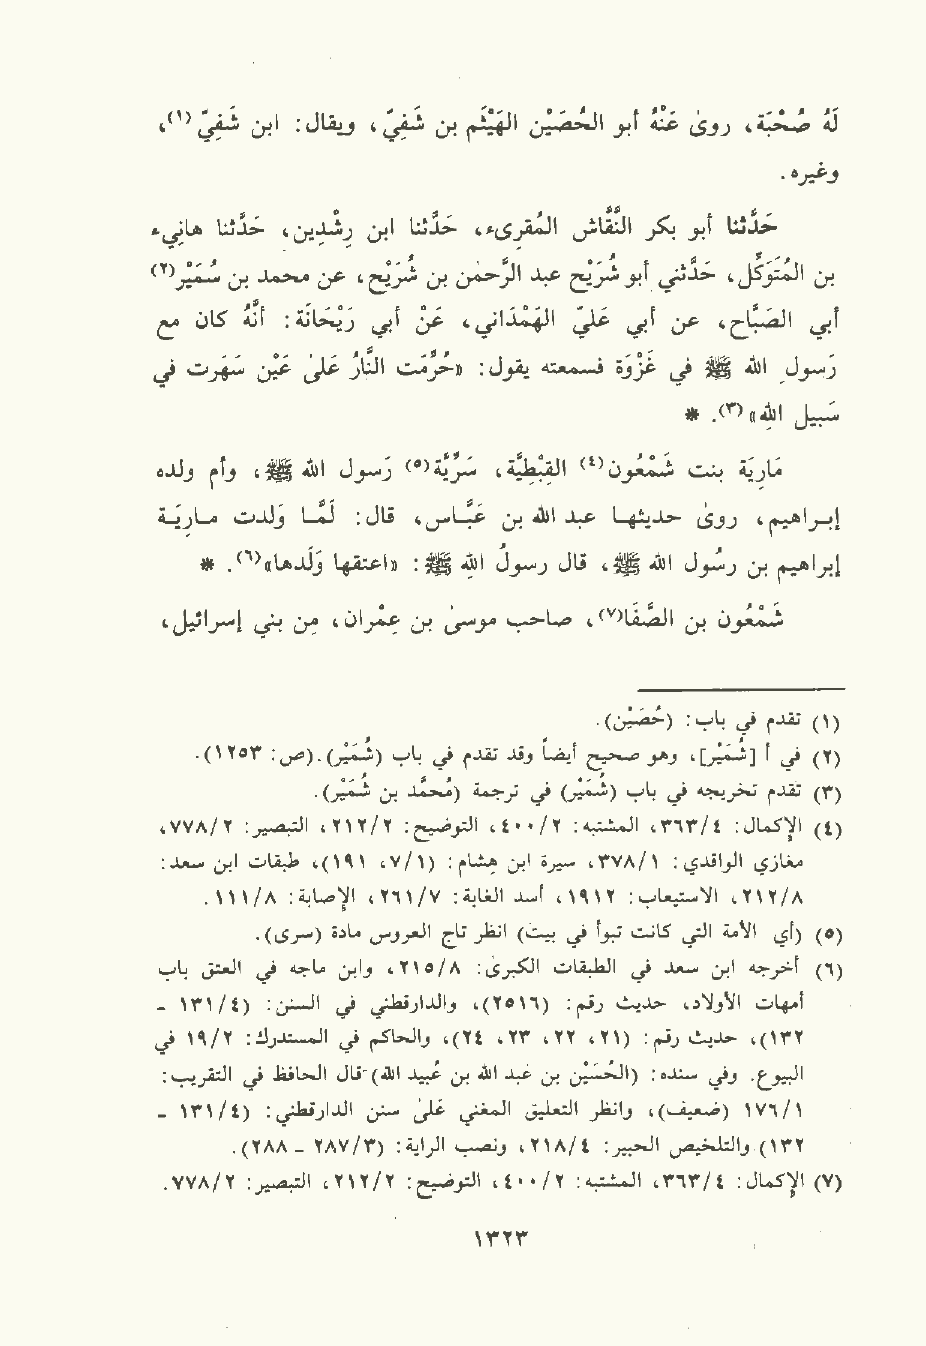 لَهُ صُحْبَة، روى عَنْهُ أبو الحُصَيْن الهَيْثَم بن شَفِيّ، ويقال: ابن شَفِيّ(١)،
وغيره.
حَدَّثنا أبو بكر النَّقَّاش المُقرىء، حَدَّثنا ابن رِشْدِين، حَدَّثنا هانِيء
بن المُتَوَكِّل، حَدَّثني أبو شُرَيْح عبد الرَّحمن بن شُرَيْح، عن محمد بن سُمَيْر(٢)
أبي الصَّبَّاح، عن أبي عَلِيّ الهَمْدَاني، عَنْ أبي رَيْحَانَة: أنَّهُ كان مع
رَسول الله ﷺ في غَزْوَة فسمعته يقول: «حُرِّمَت النَّارُ عَلىٰ عَيْن سَهَرت في
سَبيل اللهِ»(٣). *
مَارِيَة بنت شَمْعُون(٤) القِبْطِيَّة، سَرِّيَّة(٥) رَسول الله ﷺ، وأم ولده
إبراهيم، روىٰ حديثها عبد الله بن عَبَّاس، قال: لَمَّا وَلدت مارِيَة
إبراهيم بن رسُول الله ﷺ، قال رسولُ اللهِ ﷺ: «اعتقها وَلَدها»(٦). *
شَمْعُون بن الصَّفَا(٧)، صاحب موسىٰ بن عِمْران، من بني إسرائيل،
(١) تقدم في باب: (حُصَيْن).
(٢) في أ [شُمَيْر]، وهو صحيح أيضاً وقد تقدم في باب (شُمَيْر).(ص: ١٢٥٣).
(٣) تقدم تخريجه في باب (شُمَيْر) في ترجمة (مُحمَّد بن شُمَيْر).
(٤) الإكمال: ٣٦٣/٤، المشتبه: ٤٠٠/٢، التوضيح: ٢١٢/٢، التبصير: ٧٧٨/٢،
مغازي الواقدي: ٣٧٨/١، سيرة ابن هِشام: (٧/١، ١٩١)، طبقات ابن سعد:
٢١٢/٨، الاستيعاب: ١٩١٢، أسد الغابة: ٢٦١/٧، الإصابة: ١١١/٨.
(٥) (أي الأمة التي كانت تبوأ في بيت) انظر تاج العروس مادة (سرى).
(٦) أخرجه ابن سعد في الطبقات الكبرىٰ: ٢١٥/٨، وابن ماجه في العتق باب
أمهات الأولاد، حديث رقم: (٢٥١٦)، والدارقطني في السنن: (١٣١/٤ ـ
١٣٢)، حديث رقم: (٢١، ٢٢، ٢٣، ٢٤)، والحاكم في المستدرك: ١٩/٢ في
البيوع. وفي سنده: (الحُسَيْن بن عبد الله بن عُبيد الله) قال الحافظ في التقريب:
١٧٦/١ (ضعيف)، وانظر التعليق المغني علىٰ سنن الدارقطني: (١٣١/٤ ـ
١٣٢) والتلخيص الحبير: ٢١٨/٤، ونصب الراية: (٢٨٧/٣ ـ ٢٨٨).
(٧) الإكمال: ٣٦٣/٤، المشتبه: ٤٠٠/٢، التوضيح: ٢١٢/٢، التبصير: ٧٧٨/٢.
١٣٢٣